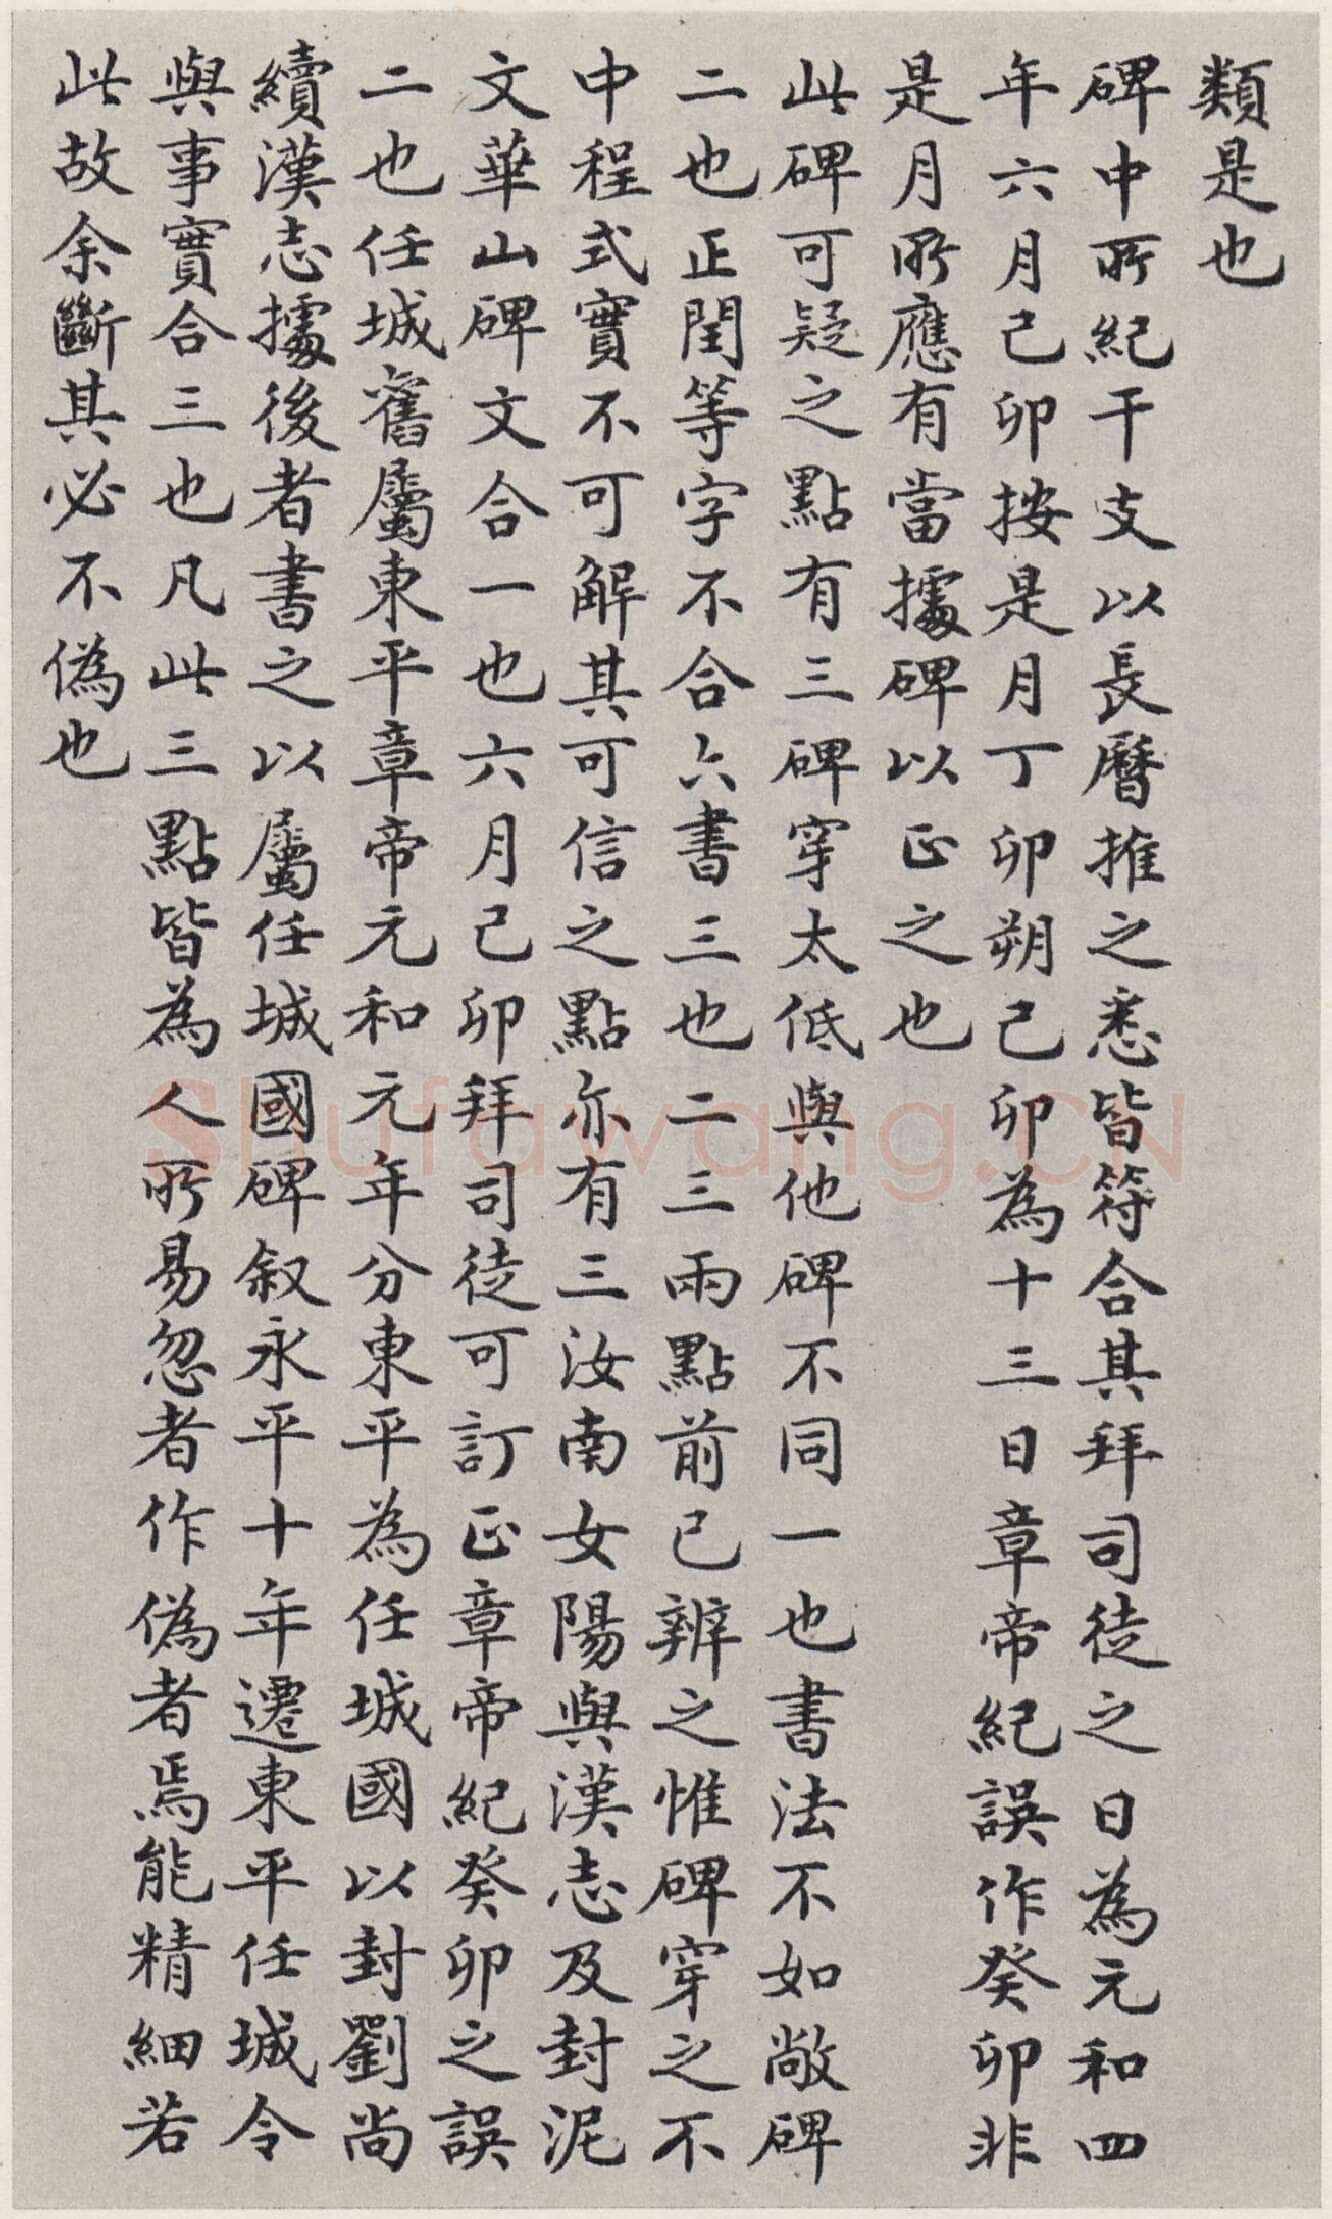 類是也
碑中所紀干支以長曆推之悉皆符合其拜司徒之日為元和四
年六月己卯按是月丁卯朔己卯為十三日章帝紀誤作癸卯非
是月所應有當據碑以正之也
此碑可疑之點有三碑穿太低與他碑不同一也書法不如敞碑
二也正閏等字不合六書三也二三兩點前已辨之惟碑穿之不
中程式實不可解其可信之點亦有三汝南女陽與漢志及封泥
文華山碑文合一也六月己卯拜司徒可訂正章帝紀癸卯之誤
二也任城舊屬東平章帝元和元年分東平為任城國以封劉尚
續漢志據後者書之以屬任城國碑叙永平十年遷東平任城令
與事實合三也凡此三點皆為人所易忽者作偽者焉能精細若
此故余斷其必不偽也
Shufawang.CN